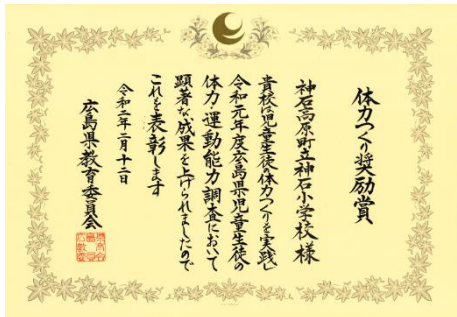 体力つくり奨励賞
神石高原町立神石小学校 様
貴校は児童生徒の体力つくりを実践し
令和元年度広島県児童生徒の
体力・運動能力調査において
顕著な成果を上げられましたので
これを表彰します
令和二年二月十二日
広島県教育委員会